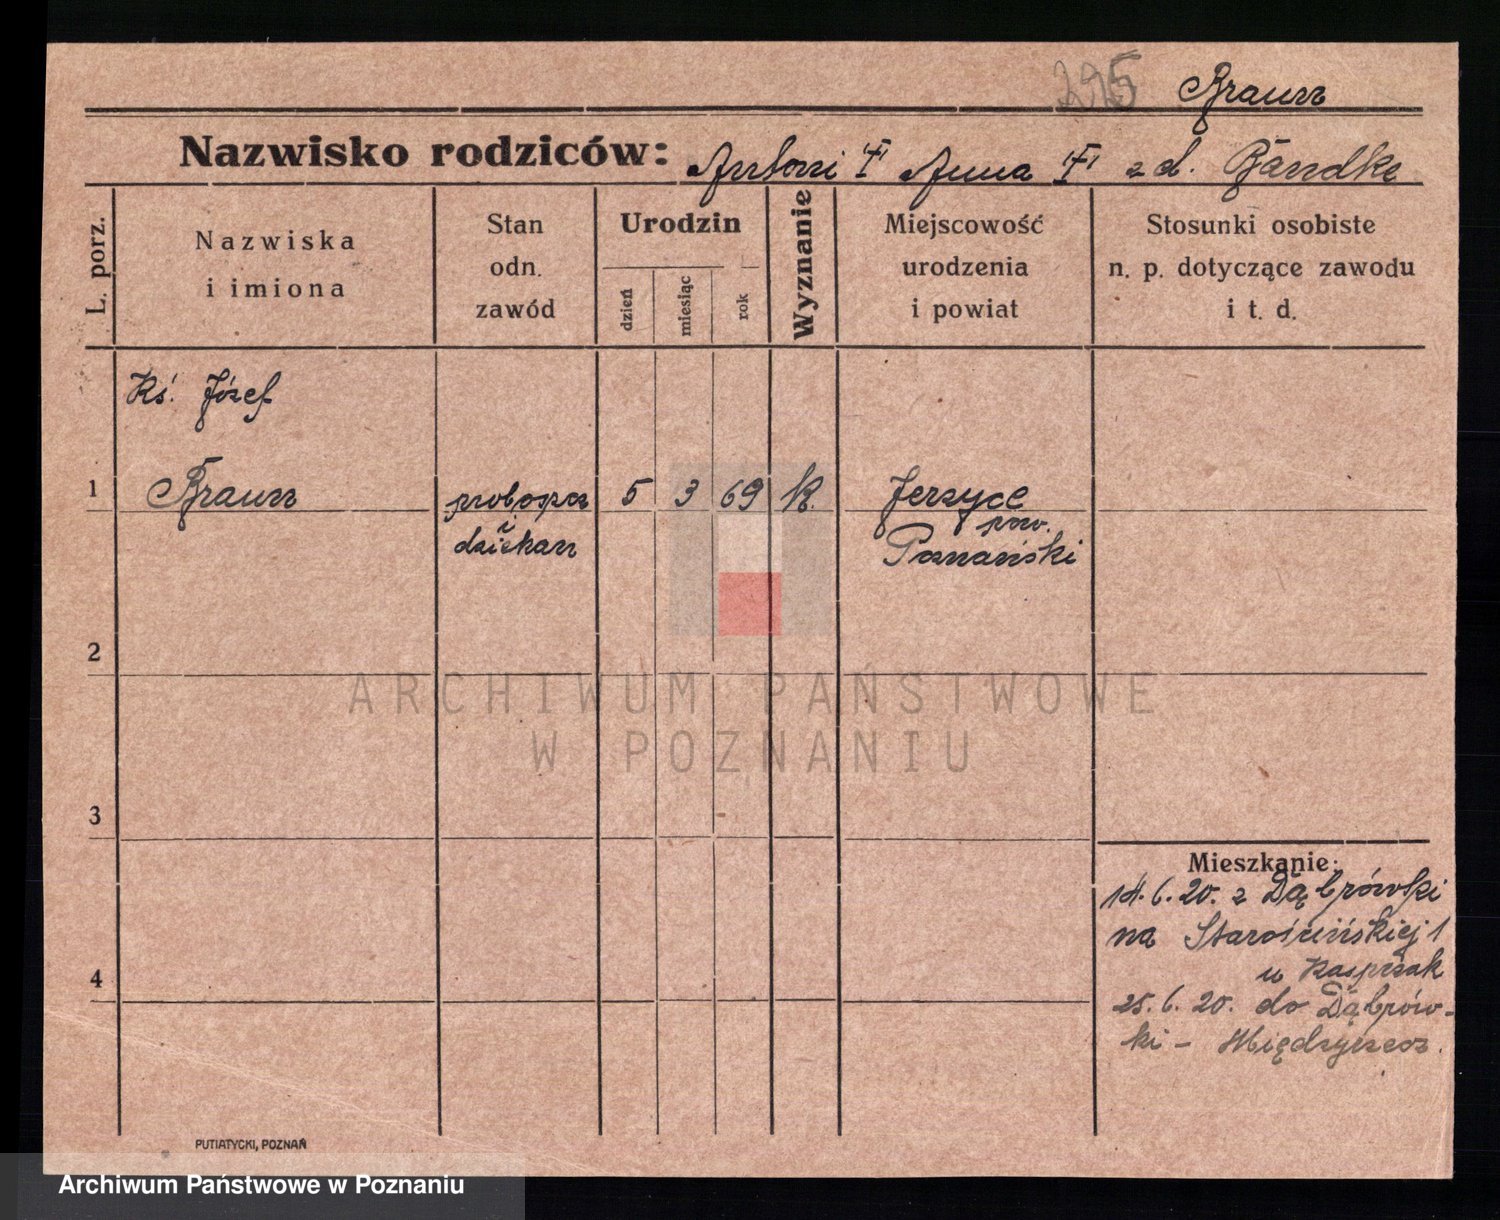 295 Braun
Nazwisko rodziców: Antoni † Anna † z d. Bandke
L. porz.
Nazwiska
i imiona
Stan
odn.
zawód
Urodzin
dzień
miesiąc
rok
Wyznanie
Miejscowość
urodzenia
i powiat
Stosunki osobiste
n. p. dotyczące zawodu
i t. d.
Kś. Józef
1 Braun proboszcz 5 3 69 K. Jerzyce
i pow.
dziekan Poznański
2
ARCHIWUM PAŃSTWOWE
W POZNANIU
3
Mieszkanie:
14.6.20. z Dąbrówki
na Starościńskiej 1
u Kasprzak
4
25.6.20. do Dąbrów-
ki - Międzyrzecz.
PUTIATYCKI, POZNAŃ
Archiwum Państwowe w Poznaniu